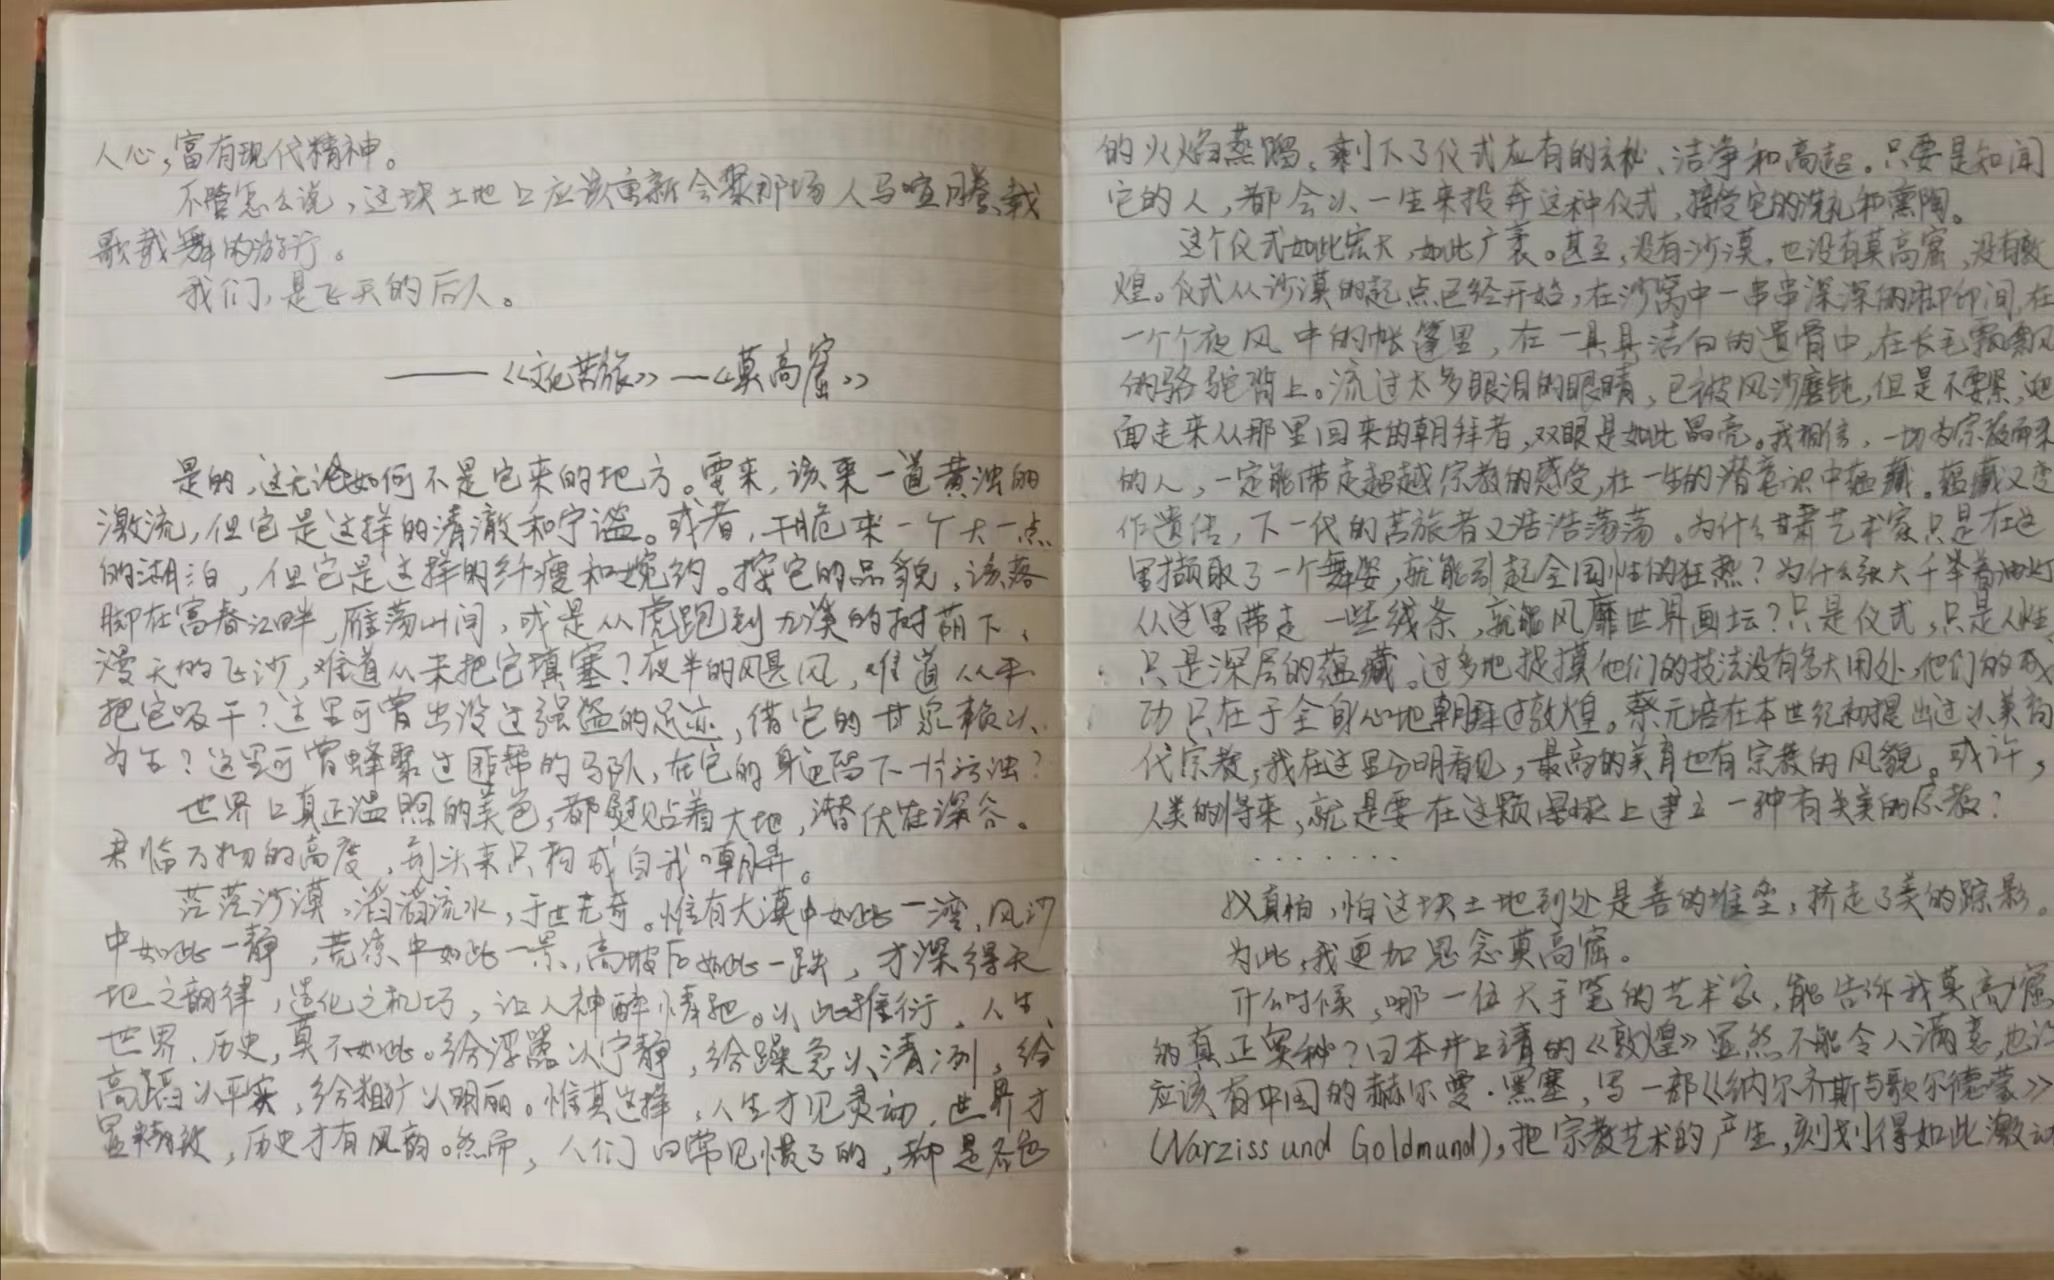 人心，富有现代精神。
不管怎么说，这块土地上应该重新会聚那场人马喧腾、载
歌载舞的游行。
我们，是飞天的后人。
——《文化苦旅》—《莫高窟》
是的，这无论如何不是它来的地方。要来，该来一道黄浊的
激流，但它是这样的清澈和宁谧。或者，干脆来一个大一点
的湖泊，但它是这样的纤瘦和婉约。按它的品貌，该落
脚在富春江畔，雁荡山间，或是从虎跑到九溪的树荫下，
漫天的飞沙，难道从未把它填塞？夜半的飓风，难道从未
把它吸干？这里可曾出没过强盗的足迹，借它的甘泉赖以
为生？这里可曾蜂聚过匪帮的马队，在它的身边留下一片污浊？
世界上真正温煦的美色，都熨贴着大地，潜伏在深谷。
君临万物的高度，到头来只构成自我嘲弄。
茫茫沙漠，滔滔流水，于世无奇。惟有大漠中如此一湾，风沙
中如此一静，荒凉中如此一景，高坡后如此一跌，才深得天
地之韵律，造化之机巧，让人神醉情驰。以此推衍，人生、
世界、历史，莫不如此。给浮嚣以宁静，给躁急以清冽，给
高蹈以平实，给粗犷以明丽。惟其这样，人生才见灵动，世界才
显精致，历史才有风韵。然而，人们日常见惯了的，都是各色
的火焰蒸馏，剩下了仪式应有的玄秘、洁净和高超。只要是知闻
它的人，都会以一生来投奔这种仪式，接受它的洗礼和熏陶。
这个仪式如此宏大，如此广袤。甚至，没有沙漠，也没有莫高窟，没有敦
煌。仪式从沙漠的起点已经开始，在沙窝中一串串深深的脚印间，在
一个个夜风中的帐篷里，在一具具洁白的遗骨中，在长毛飘飘
的骆驼背上。流过太多眼泪的眼睛，已被风沙磨钝，但是不要紧，迎
面走来从那里回来的朝拜者，双眼是如此晶亮。我相信，一切为宗教而来
的人，一定能带走超越宗教的感受，在一生的潜意识中蕴藏。蕴藏又变
作遗传，下一代的苦旅者又浩浩荡荡。为什么甘肃艺术家只是在这
里撷取了一个舞姿，就能引起全国性的狂热？为什么张大千举着油灯
从这里带走一些线条，就能风靡世界画坛？只是仪式，只是人性，
只是深层的蕴藏。过多地捉摸他们的技法没有多大用处，他们的成
功只在于全身心地朝拜过敦煌。蔡元培在本世纪初提出过以美育
代宗教，我在这里分明看见，最高的美育也有宗教的风貌。或许，
人类的将来，就是要在这颗星球上建立一种有关美的宗教？
·······
我真怕，怕这块土地到处是善的堆垒，挤走了美的踪影。
为此，我更加思念莫高窟。
什么时候，哪一位大手笔的艺术家，能告诉我莫高窟
的真正奥秘？日本井上靖的《敦煌》显然不能令人满意，也许
应该有中国的赫尔曼·黑塞，写一部《纳尔齐斯与歌尔德蒙》
(Narziss und Goldmund)，把宗教艺术的产生，刻划得如此激动